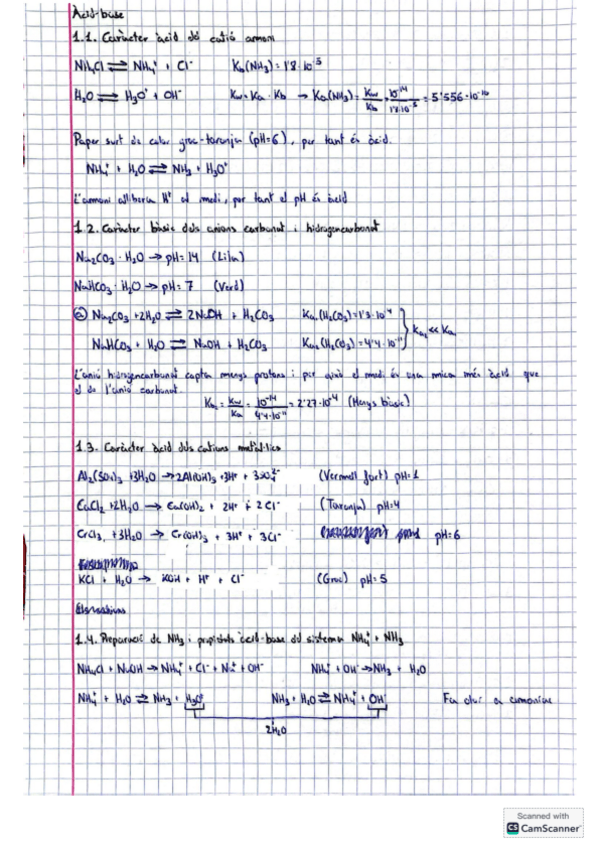 Àcid-base
1.1. Caràcter àcid del catió amoni
NH4Cl ⇌ NH4⁺ + Cl⁻ Kb(NH3)=1'8·10⁻⁵
H2O ⇌ H3O⁺ + OH⁻ Kw=Ka·Kb → Ka(NH3)=Kw/Kb=10⁻¹⁴/1'8·10⁻⁵=5'556·10⁻¹⁰
Paper surt de color groc-taronja (pH=6), per tant és àcid.
NH4⁺ + H2O ⇌ NH3 + H3O⁺
L'amoni allibera H⁺ al medi, per tant el pH és àcid
1.2. Caràcter bàsic dels anions carbonat i hidrogencarbonat
Na2CO3·H2O → pH=14 (Lila)
NaHCO3·H2O → pH=7 (Verd)
Na2CO3 +2H2O ⇌ 2NaOH + H2CO3 Ka1(H2CO3)=1'3·10⁻⁴
NaHCO3 + H2O ⇌ NaOH + H2CO3 Ka2(H2CO3)=4'4·10⁻¹¹ } Ka2 << Ka1
L'anió hidrogencarbonat capta menys protons i per això el medi és una mica més àcid que
el de l'anió carbonat.
Kw/Ka = 10⁻¹⁴/4'4·10⁻¹¹ = 2'27·10⁻⁴ (Menys bàsic)
1.3. Caràcter àcid dels cations metàl·lics
Al2(SO4)3 +3H2O → 2Al(OH)3 +3H⁺ + 3SO4²⁻ (Vermell fort) pH=1
CaCl2 +2H2O → Ca(OH)2 + 2H⁺ + 2Cl⁻ (Taronja) pH=4
CrCl3 +3H2O → Cr(OH)3 + 3H⁺ + 3Cl⁻ pH=6
KCl + H2O → KOH + H⁺ + Cl⁻ (Groc) pH=5
1.4. Preparació de NH3 i propietats àcid-base del sistema NH4⁺ + NH3
NH4Cl + NaOH → NH4⁺ + Cl⁻ + Na⁺ + OH⁻ NH4⁺ + OH⁻ → NH3 + H2O
NH4⁺ + H2O ⇌ NH3 + H3O⁺ NH3 + H2O ⇌ NH4⁺ + OH⁻ Fa olor a amoníac
2H2O
Scanned with
CS CamScanner